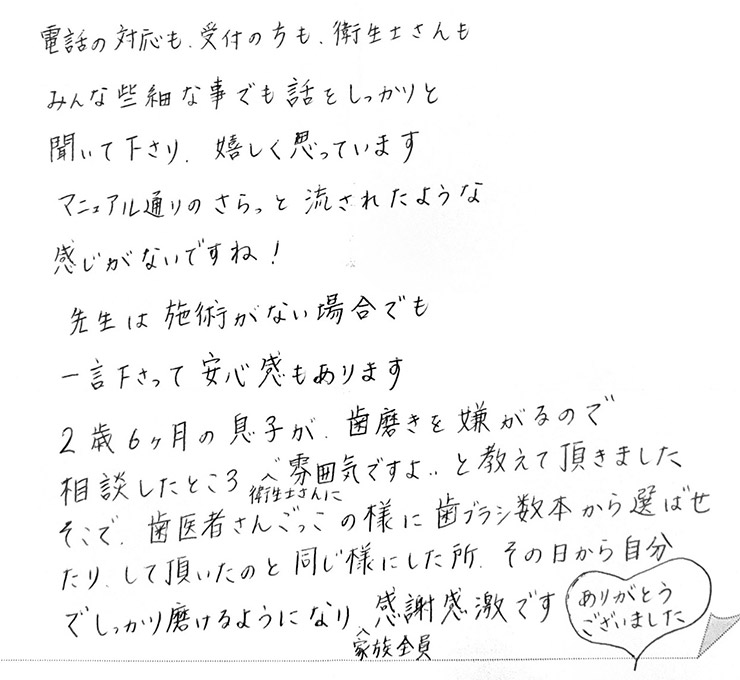 電話の対応も、受付の方も、衛生士さんも
みんな些細な事でも話をしっかりと
聞いて下さり、嬉しく思っています
マニュアル通りのさらっと流されたような
感じがないですね！
先生は施術がない場合でも
一言下さって安心感もあります
2歳6ヶ月の息子が、歯磨きを嫌がるので
相談したところ雰囲気ですよ‥と教えて頂きました
衛生士さんに
そこで、歯医者さんごっこの様に歯ブラシ数本から選ばせ
たり、して頂いたのと同じ様にした所、その日から自分
でしっかり磨けるようになり、感謝感激です
家族全員
ありがとう
ございました